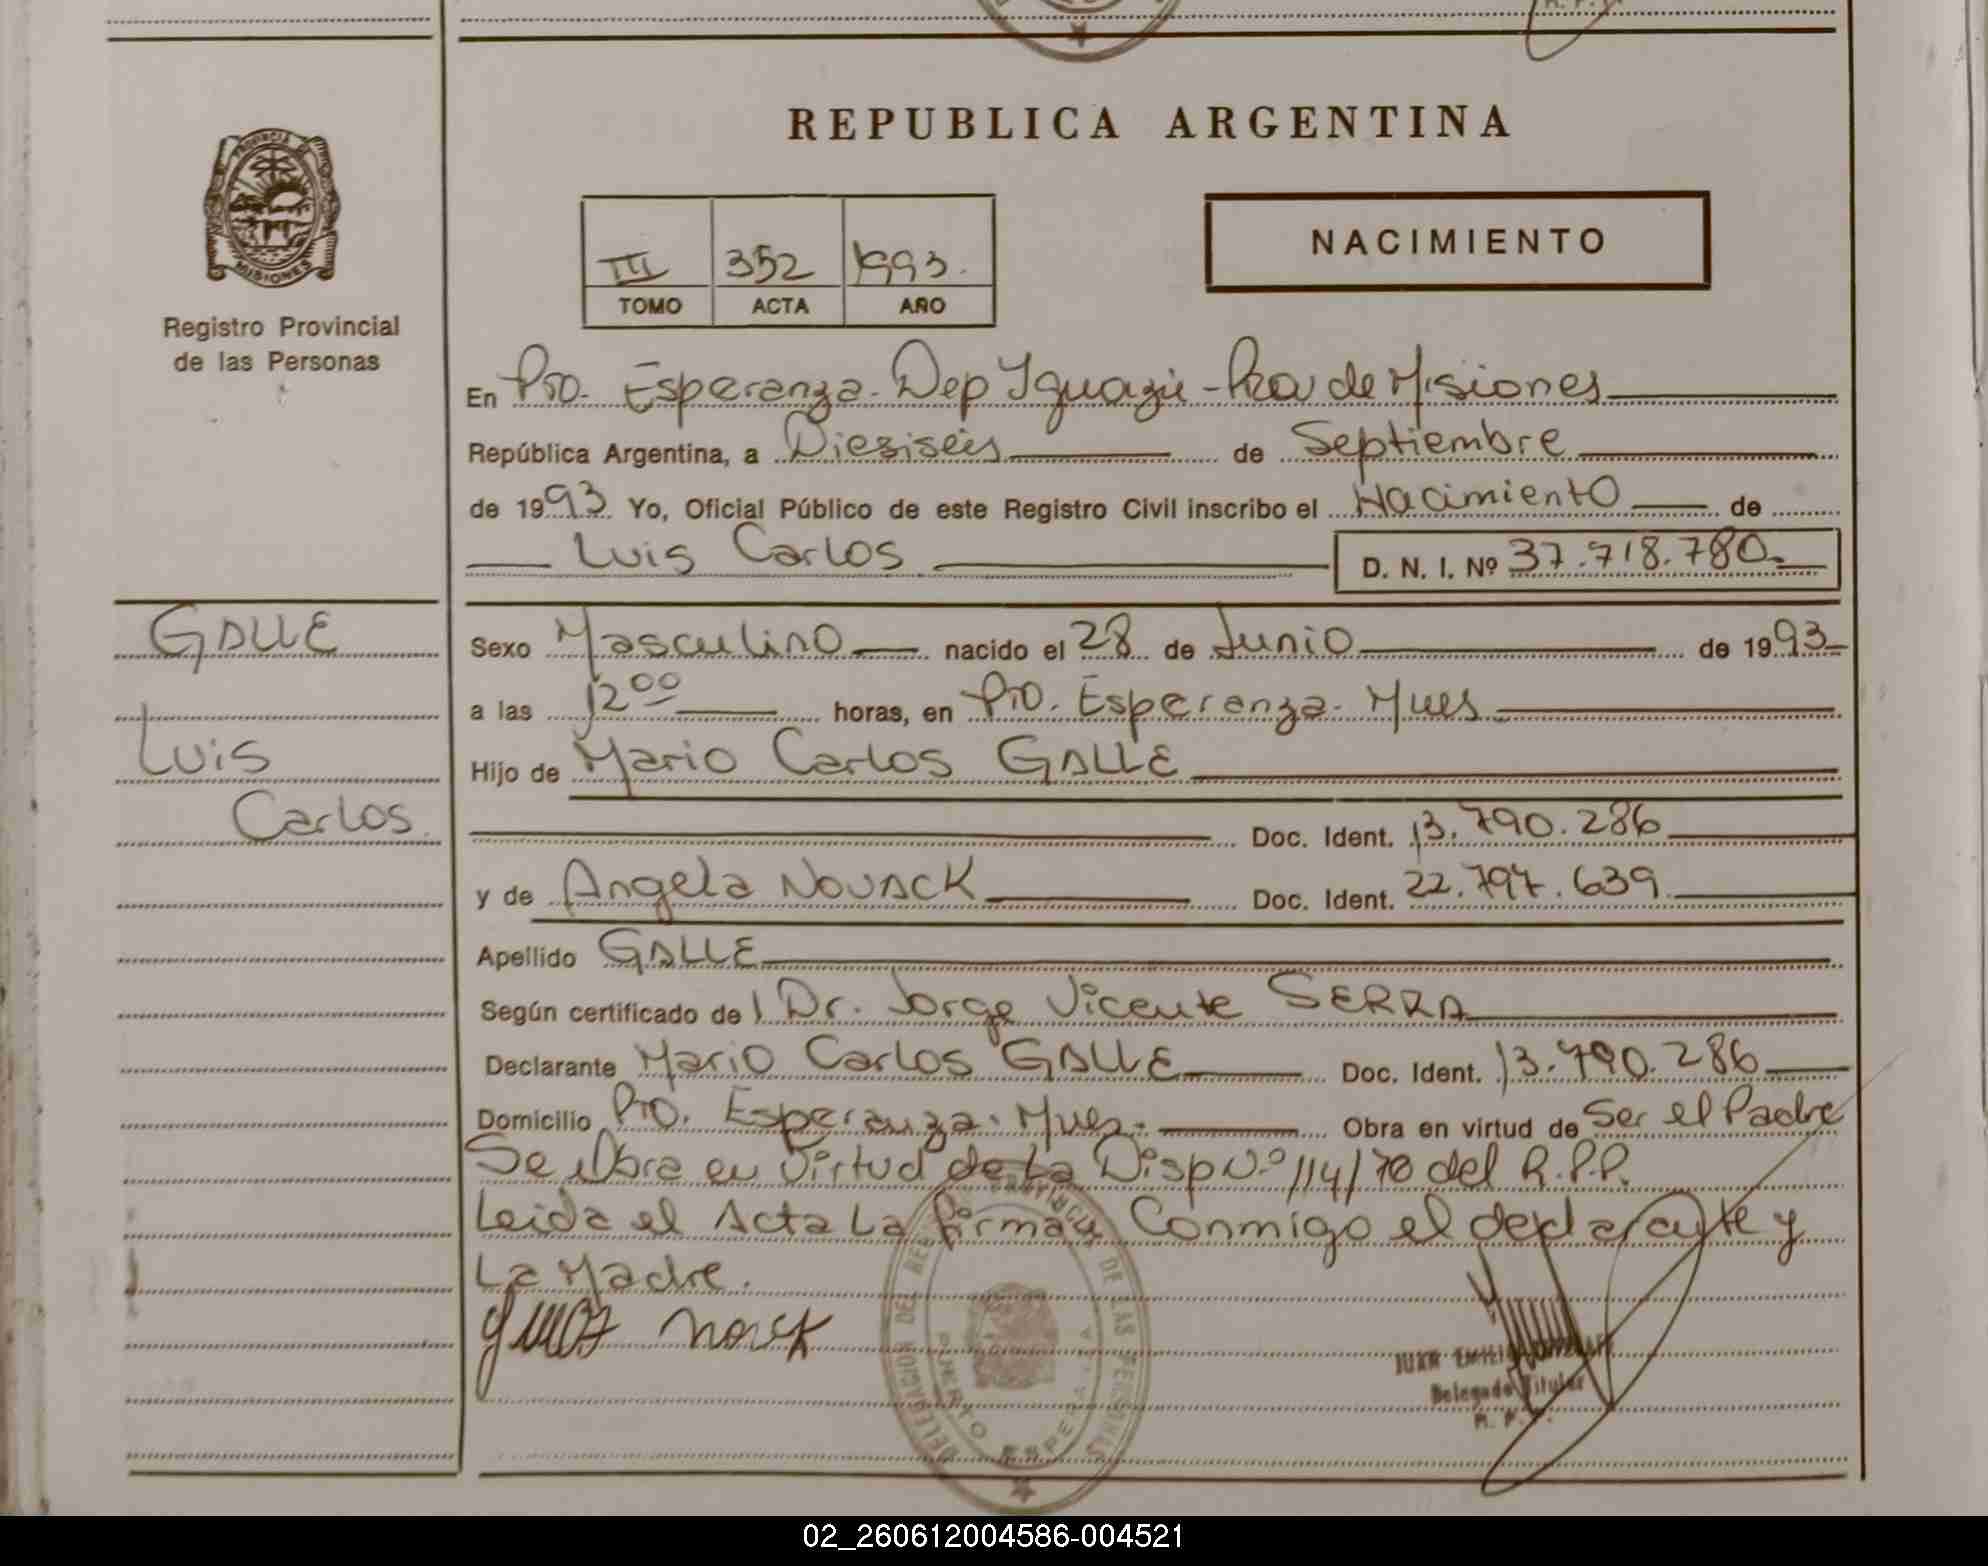 REPUBLICA ARGENTINA
PROVINCIA DE
MISIONES
Registro Provincial
de las Personas
III 352 1993.
TOMO ACTA AÑO
NACIMIENTO
En Pto. Esperanza - Dep Iguazú - Pcia de Misiones
República Argentina, a Dieziseis de Septiembre
de 1993 Yo, Oficial Público de este Registro Civil inscribo el Nacimiento de
Luis Carlos D. N. I. Nº 37.718.780.-
GALLE
Luis
Carlos.
Sexo Masculino nacido el 28 de Junio de 1993-
a las 12 00 horas, en Pto. Esperanza - Mnes
Hijo de Mario Carlos GALLE
Doc. Ident. 13.790.286
y de Angela NOVACK Doc. Ident. 22.797.639
Apellido GALLE
Según certificado del Dr. Jorge Vicente SERRA
Declarante Mario Carlos GALLE Doc. Ident. 13.790.286
Domicilio Pto. Esperanza - Mnes. Obra en virtud de Ser el Padre
Se Obra en Virtud de La Disp Nº 114/70 del R.P.P.
Leida el Acta La firman Conmigo el declarante y
La Madre.
DELEGACION DEL REGISTRO PROVINCIAL DE LAS PERSONAS
PUERTO ESPERANZA
JUAN EMILIO
Delegado Titular
02_260612004586-004521